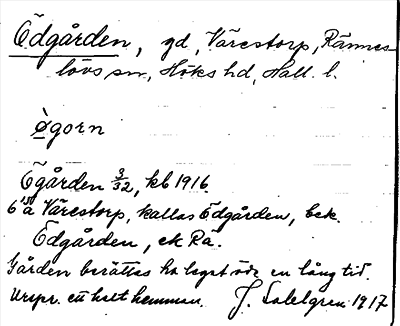 Ödgården, gd, Vårestorp, Rännes-
lövs sn, Höks hd, Hall. l.
ø̀gorn
Ögården 3/32, kb 1916.
6 Vårestorp, kallas Ödgården, bek.
Ödgården, ek Ra.
Gården berättas ha legat öde en lång tid.
Urspr. ett helt hemman. J. Sahlgren 1917